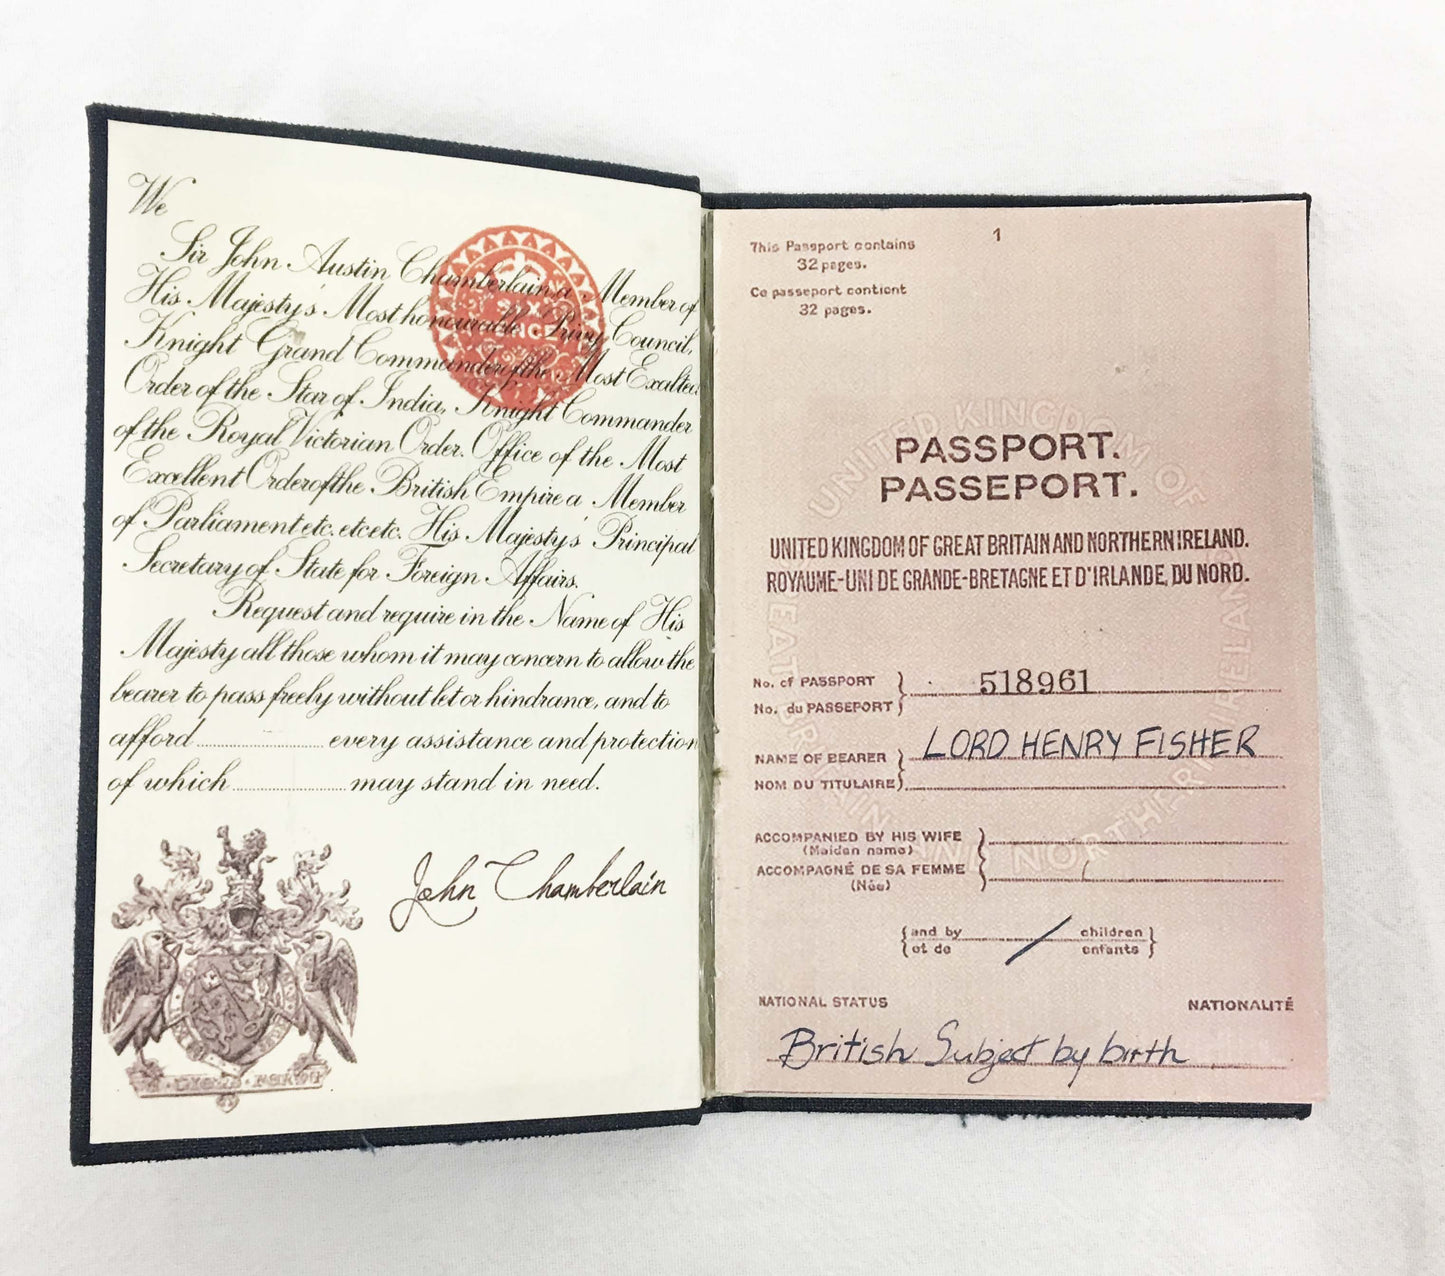 We
Sir John Austin Chamberlain a Member of
His Majesty's Most honourable Privy Council,
Knight Grand Commander of the Most Exalted
Order of the Star of India, Knight Commander
of the Royal Victorian Order. Office of the Most
Excellent Order of the British Empire a Member
of Parliament etc. etc etc. His Majesty's Principal
Secretary of State for Foreign Affairs.
Request and require in the Name of His
Majesty all those whom it may concern to allow the
bearer to pass freely without let or hindrance, and to
afford every assistance and protection
of which may stand in need.
John Chamberlain
SIX
PENCE
1
This Passport contains
32 pages.
Ce passeport contient
32 pages.
PASSPORT.
PASSEPORT.
UNITED KINGDOM OF GREAT BRITAIN AND NORTHERN IRELAND.
ROYAUME-UNI DE GRANDE-BRETAGNE ET D'IRLANDE, DU NORD.
No. of PASSPORT
518961
No. du PASSEPORT
NAME OF BEARER LORD HENRY FISHER
NOM DU TITULAIRE
ACCOMPANIED BY HIS WIFE
(Maiden name)
ACCOMPAGNÉ DE SA FEMME
(Née)
and by / children
et de enfants
NATIONAL STATUS NATIONALITÉ
British Subject by birth
UNITED KINGDOM OF